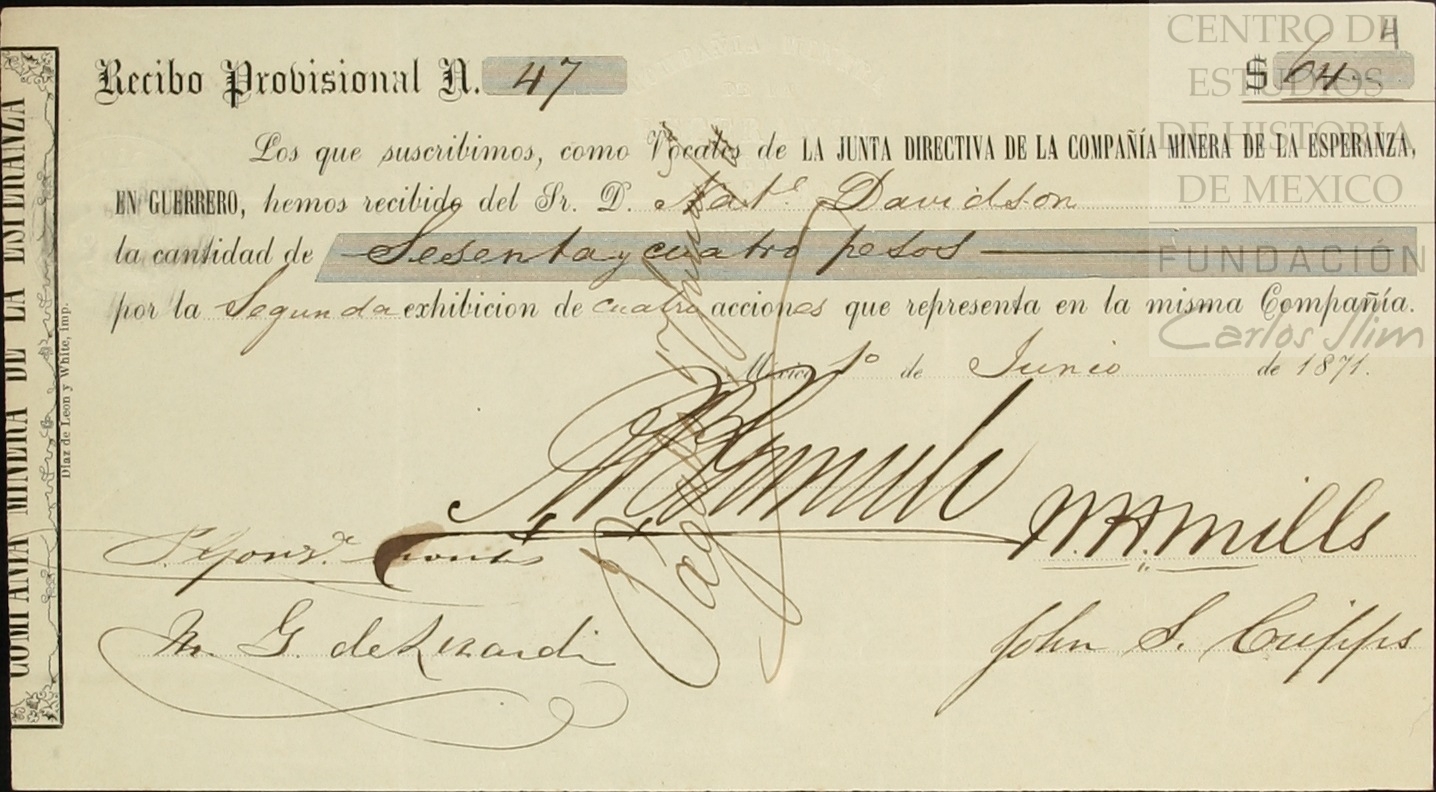 CENTRO DE
ESTUDIOS
DE HISTORIA
DE MEXICO
FUNDACIÓN
Carlos Slim
COMPAÑIA MINERA DE LA ESPERANZA
Diaz de Leon y White, imp.
4
Recibo Provisional N. 47 $ 64..
Los que suscribimos, como Vocales de LA JUNTA DIRECTIVA DE LA COMPAÑÍA MINERA DE LA ESPERANZA,
EN GUERRERO, hemos recibido del Sr. D. Nat.l Davidson
la cantidad de Sesenta y cuatro pesos
por la Segunda exhibicion de cuatro acciones que representa en la misma Compañía.
Mexico 1º de Junio de 1871.
N. A. Mills
M. G. de Lizardi
John S. Cripps